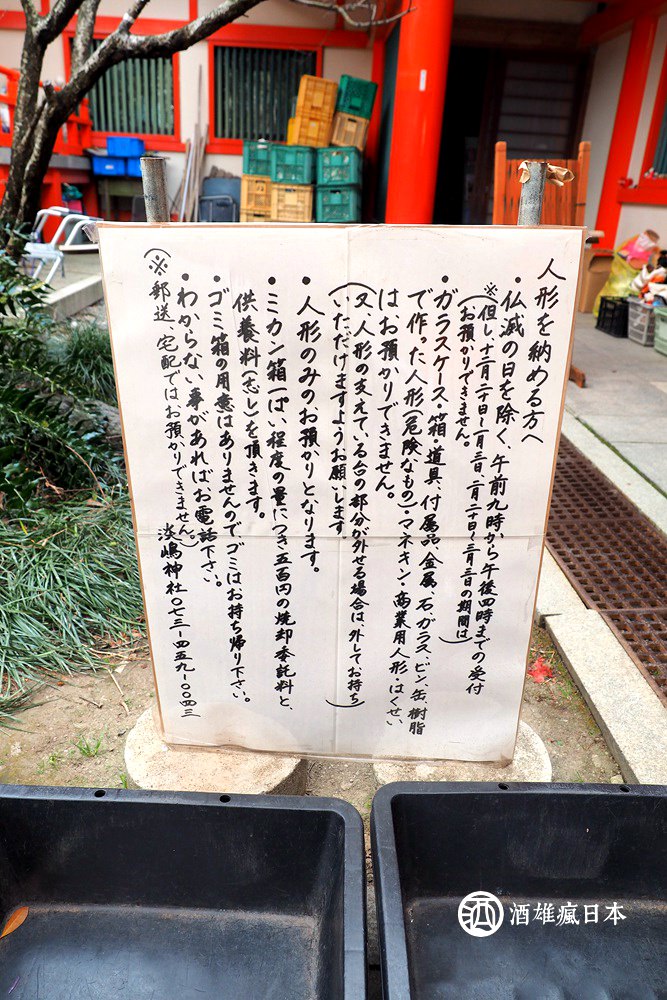 人形を納める方へ
・仏滅の日を除く、午前九時から午後四時までの受付
※(但し、十二月二十日～一月三日、二月二十日～三月三日の期間は
お預かりできません。)
・ガラスケース、箱・道具、付属品、金属、石、ガラス、ビン、缶、樹脂
で作った人形(危険なもの)・マネキン・商業用人形・はくせい
は、お預かりできません。
(又、人形の支えている台の部分が外せる場合は、外してお持ち
いただけますようお願いします。)
・人形のみのお預かりとなります。
・ミカン箱一ぱい程度の量につき五百円の焼却委託料と、
供養料(志し)を頂きます。
・ゴミ箱の用意はありませんので、ゴミはお持ち帰り下さい。
・わからない事があればお電話下さい。
(※郵送、宅配ではお預かりできません。)
淡嶋神社〇七三-四五九-〇〇四三
酒雄瘋日本